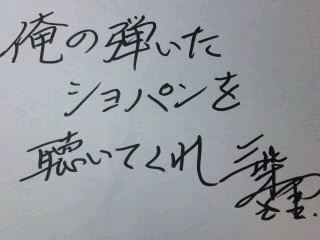 俺の弾いた
ショパンを
聴いてくれ 三柴理